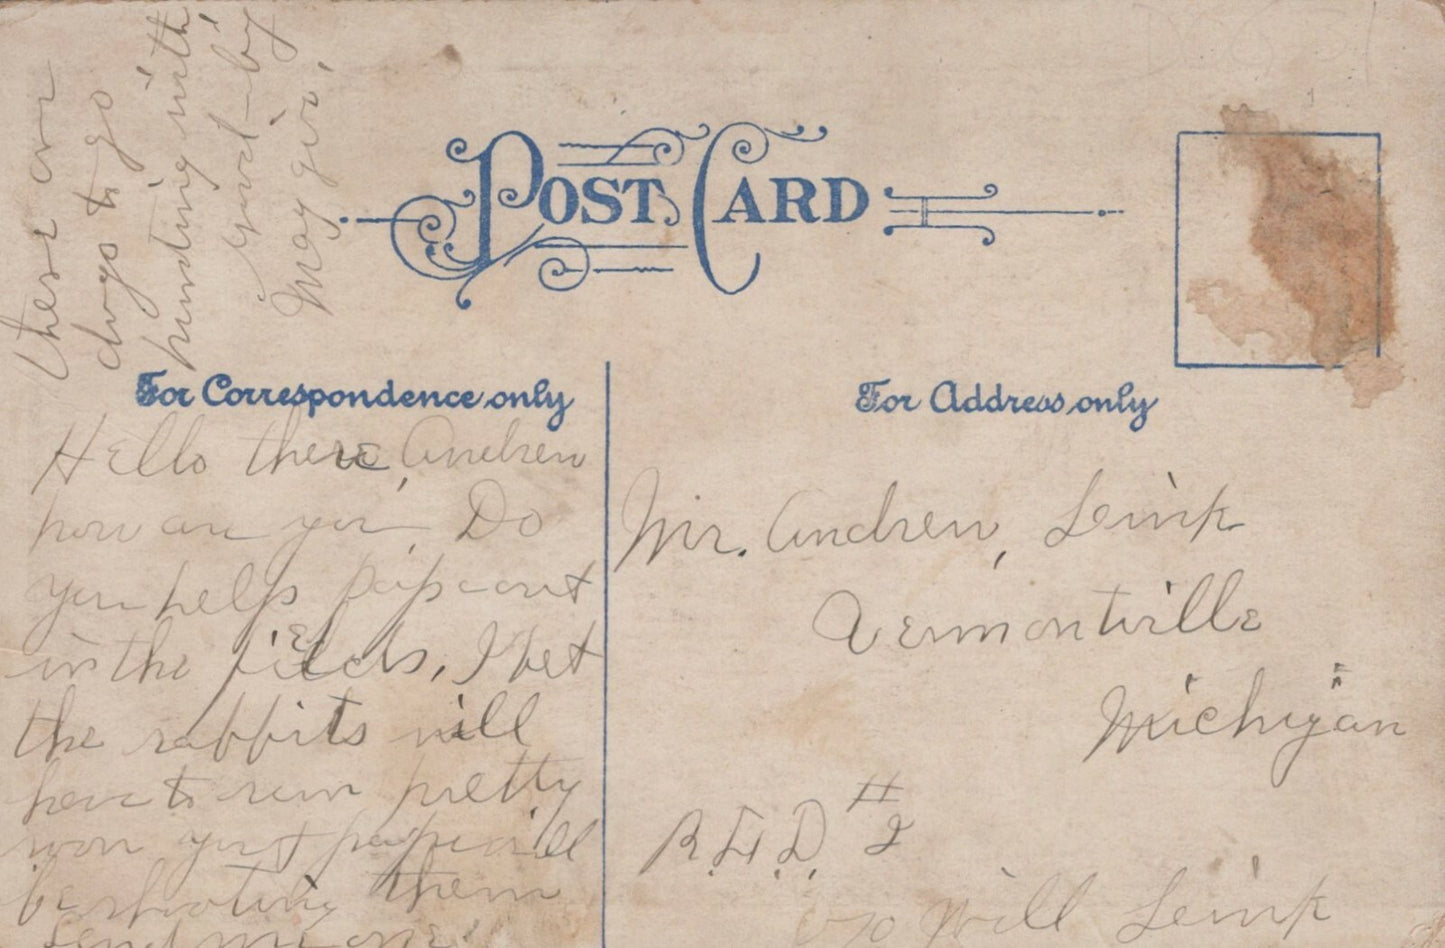 POST CARD
For Correspondence only
For Address only
Hello there, Andrew
how are you, Do
you help papa out
in the fields, I bet
the rabbits will
have to run pretty
you & papa will
be shooting them
send me one
there are
days to go
hunting with
good-by
May
Mr. Andrew, Leink
Vermontville
Michigan
R.F.D. #2
c/o Will Leink